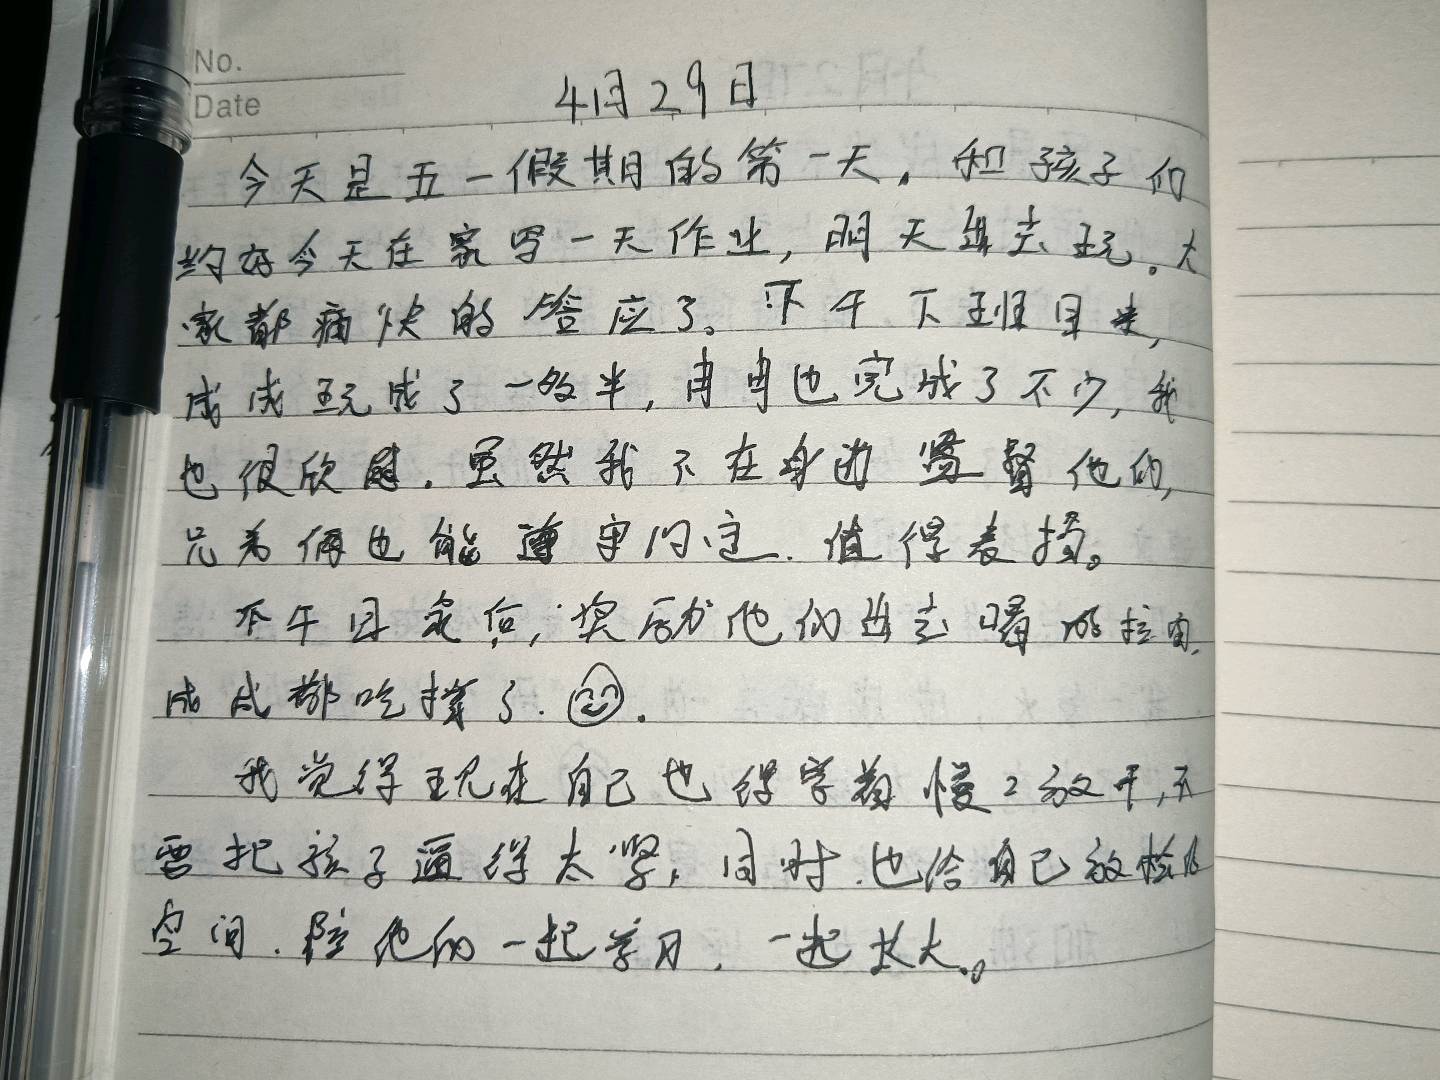 No.
Date
4月29日
今天是五一假期的第一天。和孩子们
约好今天在家写一天作业,明天出去玩。大
家都痛快的答应了。下午下班回来,
成成玩成了一多半,冉冉也完成了不少,我
也很欣慰。虽然我不在身边监督他们,
兄弟俩也能遵守约定。值得表扬。
下午回家后,奖励他们出去喝 拉面,
成成都吃撑了.
我觉得现在自己也得学着慢2放手,不
要把孩子逼得太紧,同时也给自己放松的
空间.陪他们一起学习,一起长大。